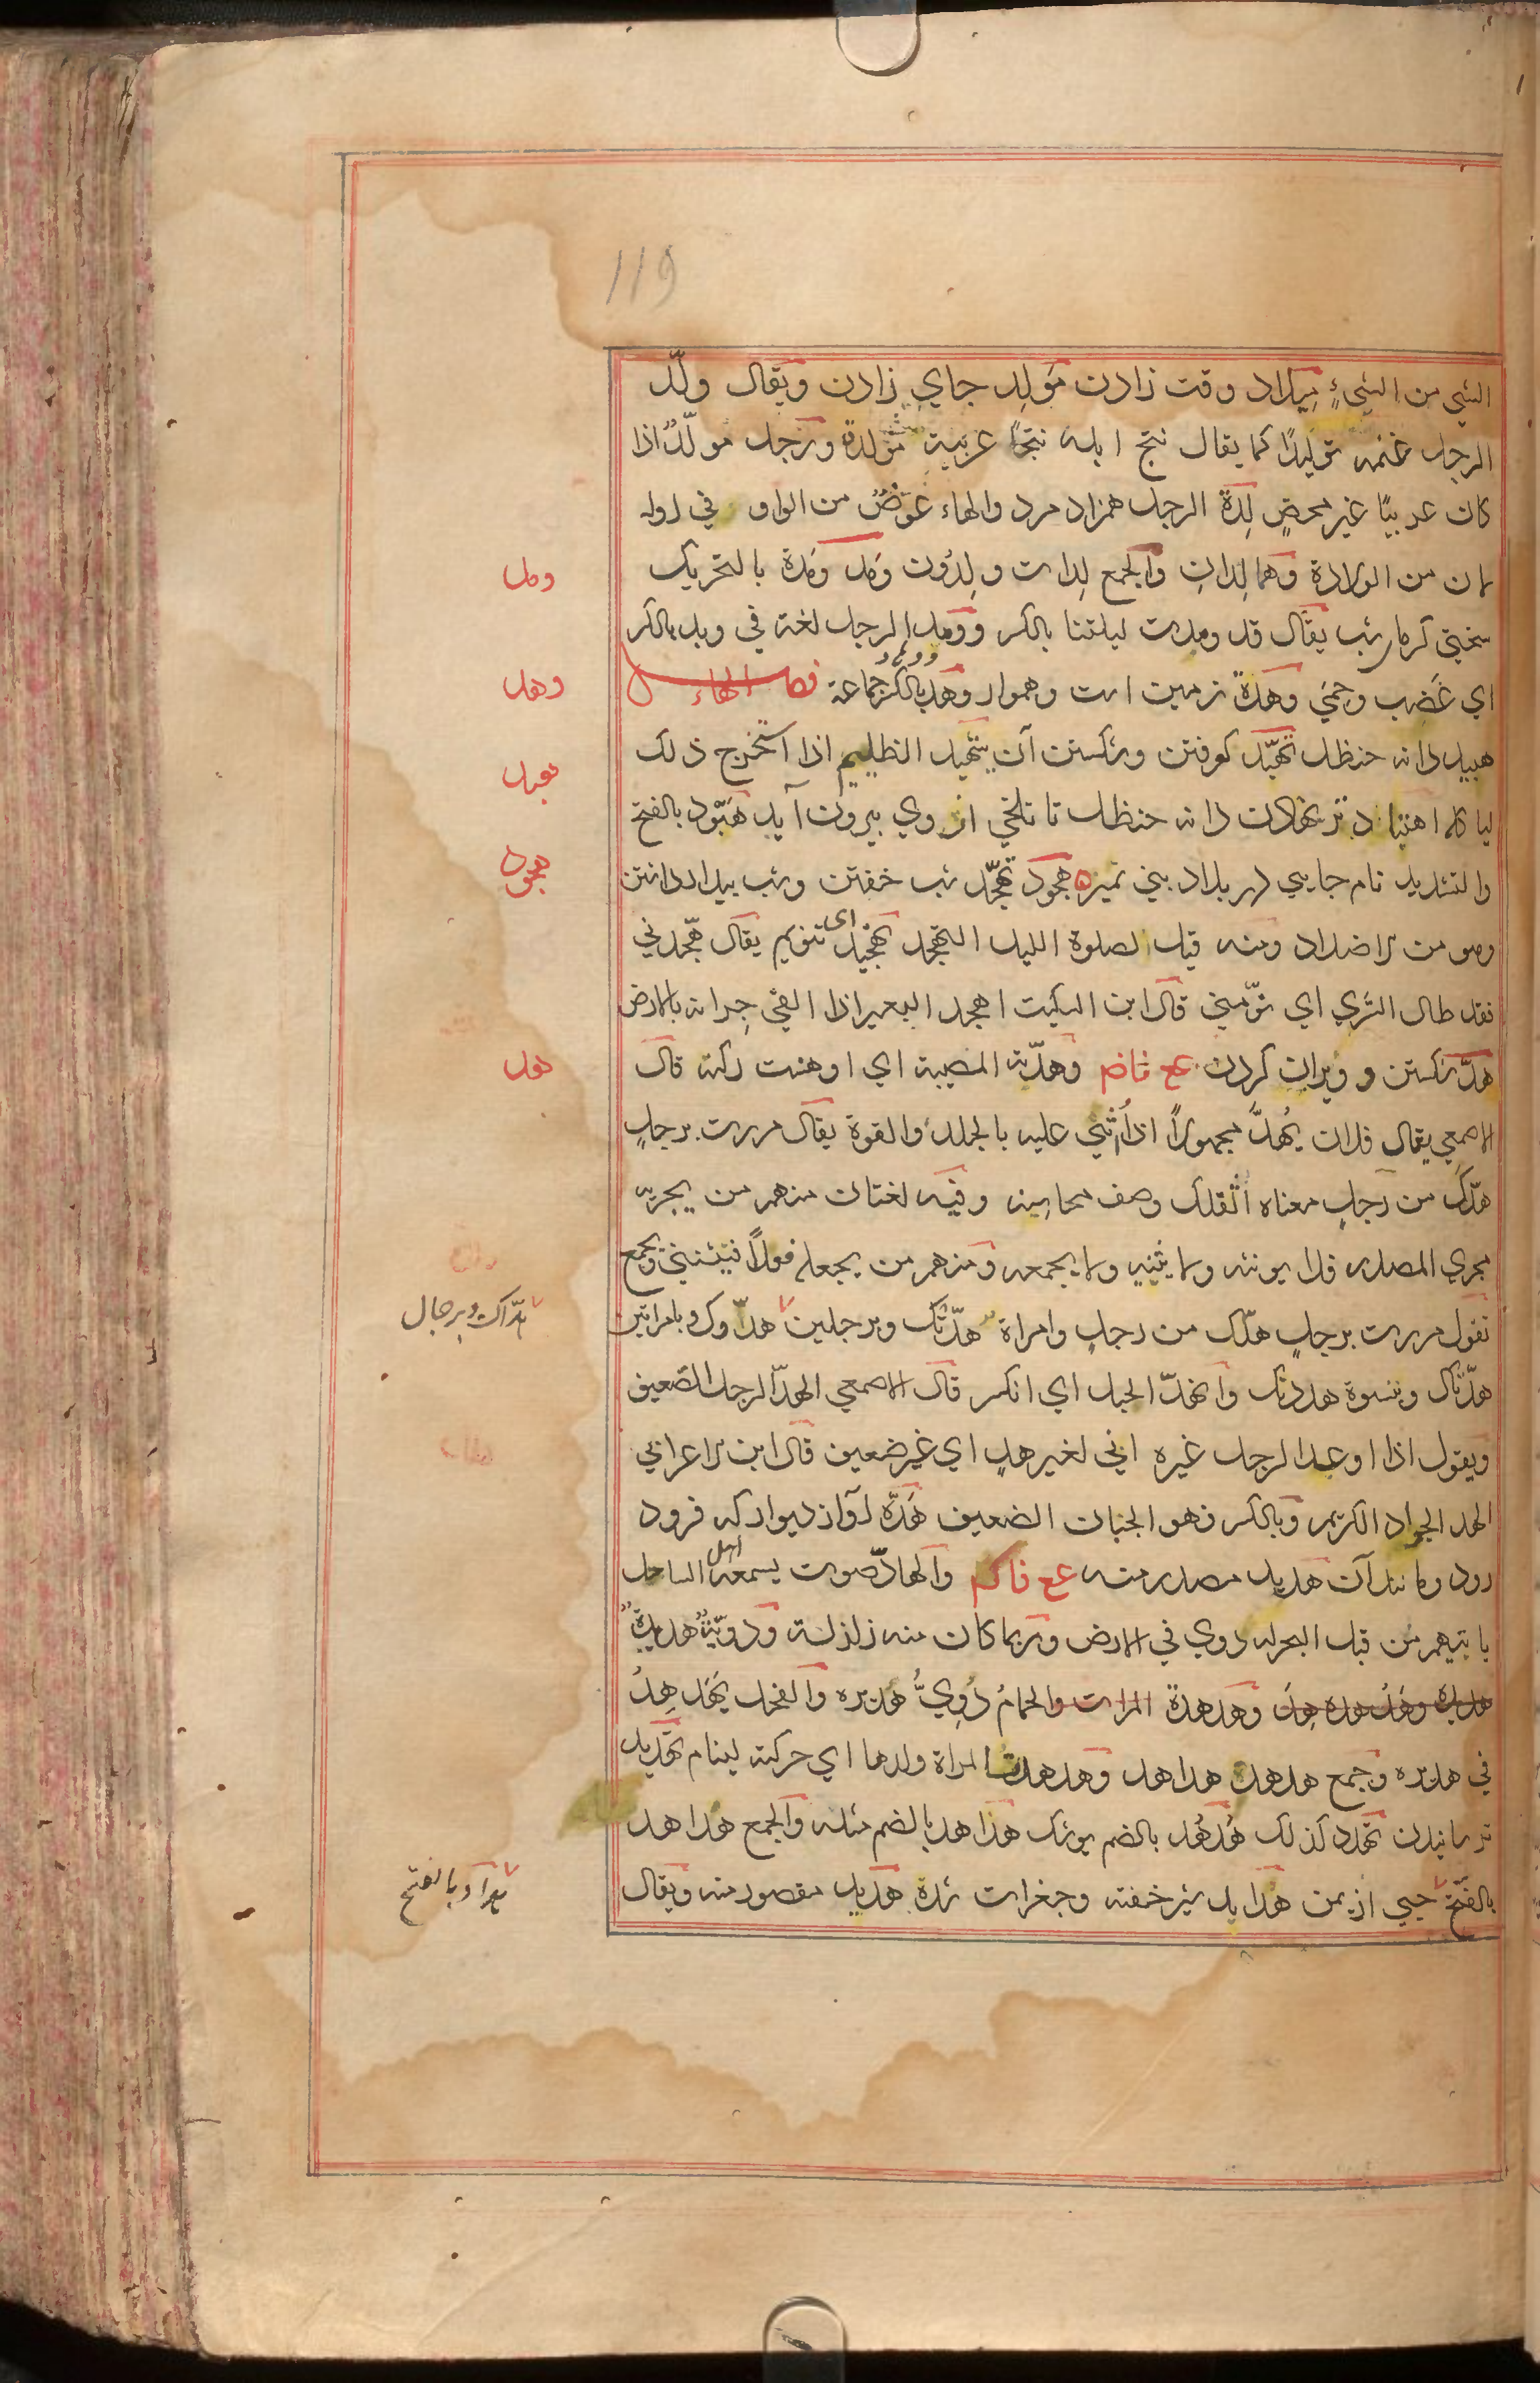 119
الشيء من الشيءٍ مِيلاد وقت زادن مَولِد جاي زادن ويقال ولّد
الرجل غنمه توليدًا كما يقال نتج ابله نتجًا عربية مولدة ورجل مولّدٌ اذا
كان عربيًا غير محضٍ لِدَة الرجل همزاد مرد والهاء عوَضٌ من الواو في اوله
لان من الولادة وهما لِدانِ والجمع لِدات ولِدُون ومَد ومَدة بالتحريك
سختي كرما شب يقال قد ومدت ليلتنا بالكسر وومد الرجل لغة في وبد بالكسر
اي غضِب وحمِيَ وهدة زمين است وهموار وهد بالكسر جماعة فصل الهاء
هبيد دانه حنظل تهبّد كوفتن وشكستن آن يتهبد الظليم اذا استخرج ذلك
لياكله اهتباد تر نهادن دانه حنظل تا تلخي از وي بيرون آيد هَبّود بالفتح
والتشديد نام جايي در بلاد بني تميم هجود تهجّد شب خفتن وشب بيدار داشتن
وهو من الاضداد ومنه قيل لصلوة الليل التهجد تهجيد اى تنويم يقال هجّدني
فقد طال السَّري اي نوّمني قال ابن السكيت اهجد البعير اذا القي جِرانه بالارض
هدّ شكستن و ويران كردن ع فاضم وهدّته المصيبة اي اوهنت ركنه قال
الاصمعي يقال فلان يُهدّ مجهولًا اذا اُثني عليه بالجلد والقوة يقال مررت برجلٍ
هدّك من رجلٍ معناه اثقلك وصف محاسنه وفيه لغتان منهم من يجريه
مجري المصدر فلا يونثه ولا يثنيه ولا يجمعه ومنهم من يجعله فعلًا فيثني ويجمع
تقول مررت برجلٍ هدّك من رجلٍ وامراة هدّتك وبرجلين هدّوك وبامراتين
هدّتاك وبنسوة هددنك وانهدّ الجبل اي انكسر قال الاصمعي الهدّ الرجل الضعيف
ويقول اذا اوعد الرجل غيره اني لغير هدٍ اي غير ضعيف قال ابن الاعرابي
الهد الجواد الكريم وبالكسر فهو الجبان الضعيف هَدّه آواز ديوار كه فرود
رود ومانند آن هديد مصدر منه ع فاكم والهادّ صوت يسمعه اهل الساحل
ياتيهم من قبل البحر له دوي في الارض وربما كان منه زلزلة ودويّته هديدةٌ
وهدهدة الحمام دُوِيُّ هديره والفحل يهَدهِدُ
في هديره وجمع هدهدة هداهد وهدهدت المراة ولدها اي حركته لينام تهديد
ترسانيدن تهدد كذلك هُدهُد بالضم پوپك هداهد بالضم مثله والجمع هداهد
بالفتح حيي از يمن هدابد شير خفته وجغرات شدة هدبد مقصور منه ويقال
ومد
وهد
هبد
هجود
هد
هدّاك وبرجال
هداد بالفتح